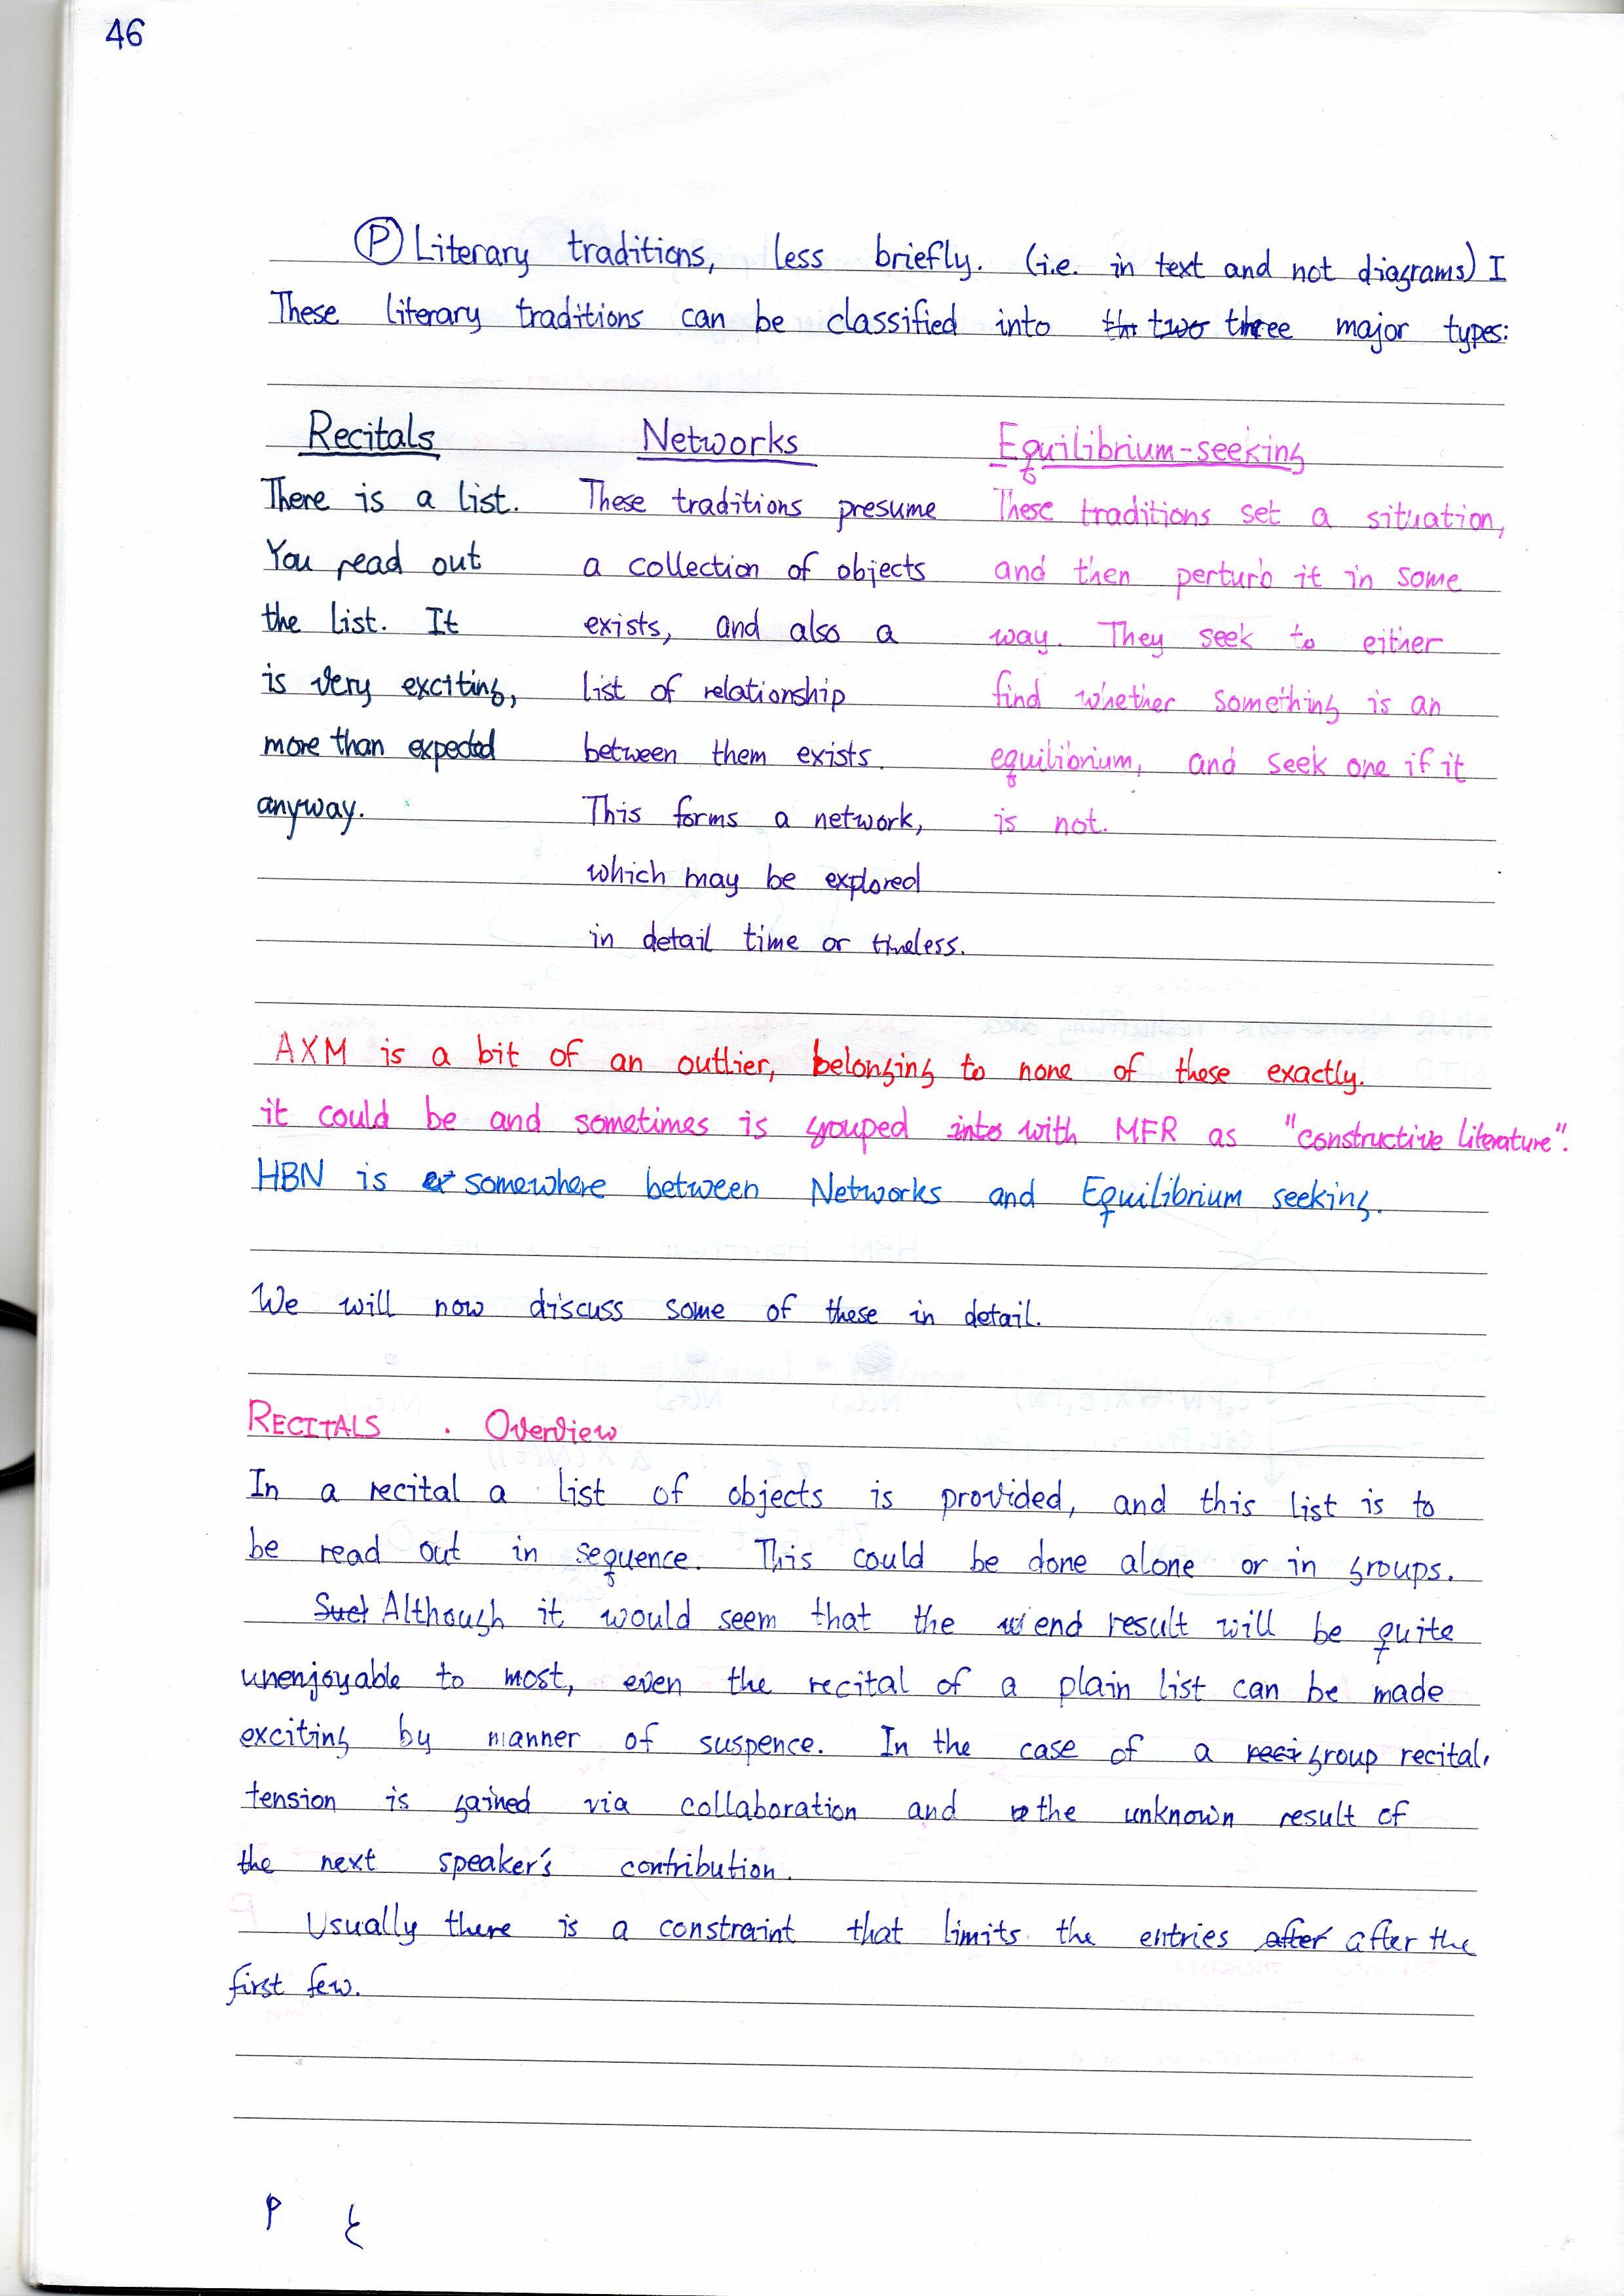 46
Ⓟ Literary traditions, less briefly. (i.e. in text and not diagrams) I
These literary traditions can be classified into thr two three major types:
Recitals
There is a list.
You read out
the list. It
is very exciting,
more than expected
anyway.
Networks
These traditions presume
a collection of objects
exists, and also a
list of relationship
between them exists.
This forms a network,
which may be explored
in detail time or timeless.
Equilibrium-seeking
These traditions set a situation,
and then perturb it in some
way. They seek to either
find whether something is an
equilibrium, and seek one if it
is not.
AXM is a bit of an outlier, belonging to none of these exactly.
it could be and sometimes is grouped into with MFR as "constructive literature".
HBN is somewhere between Networks and Equilibrium seeking.
We will now discuss some of these in detail.
RECITALS . Overview
In a recital a list of objects is provided, and this list is to
be read out in sequence. This could be done alone or in groups.
Such Although it would seem that the end result will be quite
unenjoyable to most, even the recital of a plain list can be made
exciting by manner of suspence. In the case of a reci group recital,
tension is gained via collaboration and the unknown result of
the next speaker's contribution.
Usually there is a constraint that limits the entries after after the
first few.
P